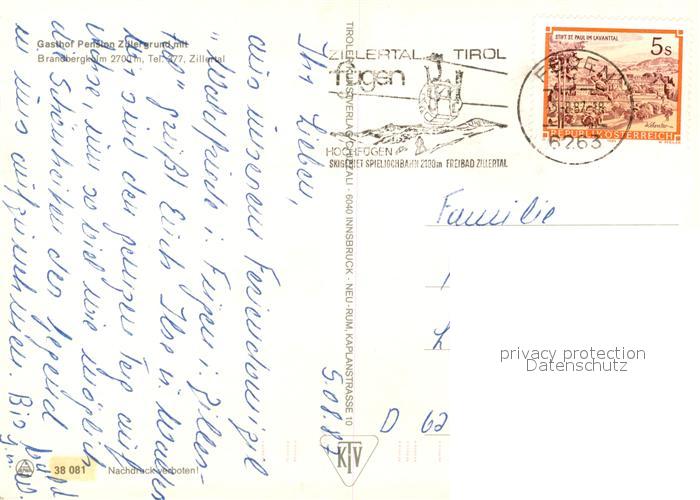 Gasthof Pension Zillergrund mit
Brandbergkolm 2700 m, Tel. 377, Zillertal
5.08.87
Ihr Lieben,
aus unserem Feriendomizil
"Hochfügen" i. Fügen i. Ziller-
grüßt Euch
Wir sind den ganzen Tag auf
um so viel wie möglich
Schönheiten der Gegend
in uns aufzunehmen. Bis bald
38 081
Nachdruck verboten!
TIROLER KUNSTVERLAG CHIZZALI · 6040 INNSBRUCK - NEU-RUM, KAPLANSTRASSE 10
KTV
ZILLERTAL TIROL
fügen
HOCHFÜGEN
SKIGEBIET SPIELJOCHBAHN 2100m FREIBAD ZILLERTAL
FÜGEN
6263
STIFT ST. PAUL IM LAVANTTAL
5 S
REPUBLIK ÖSTERREICH
Familie
D 62
privacy protection
Datenschutz